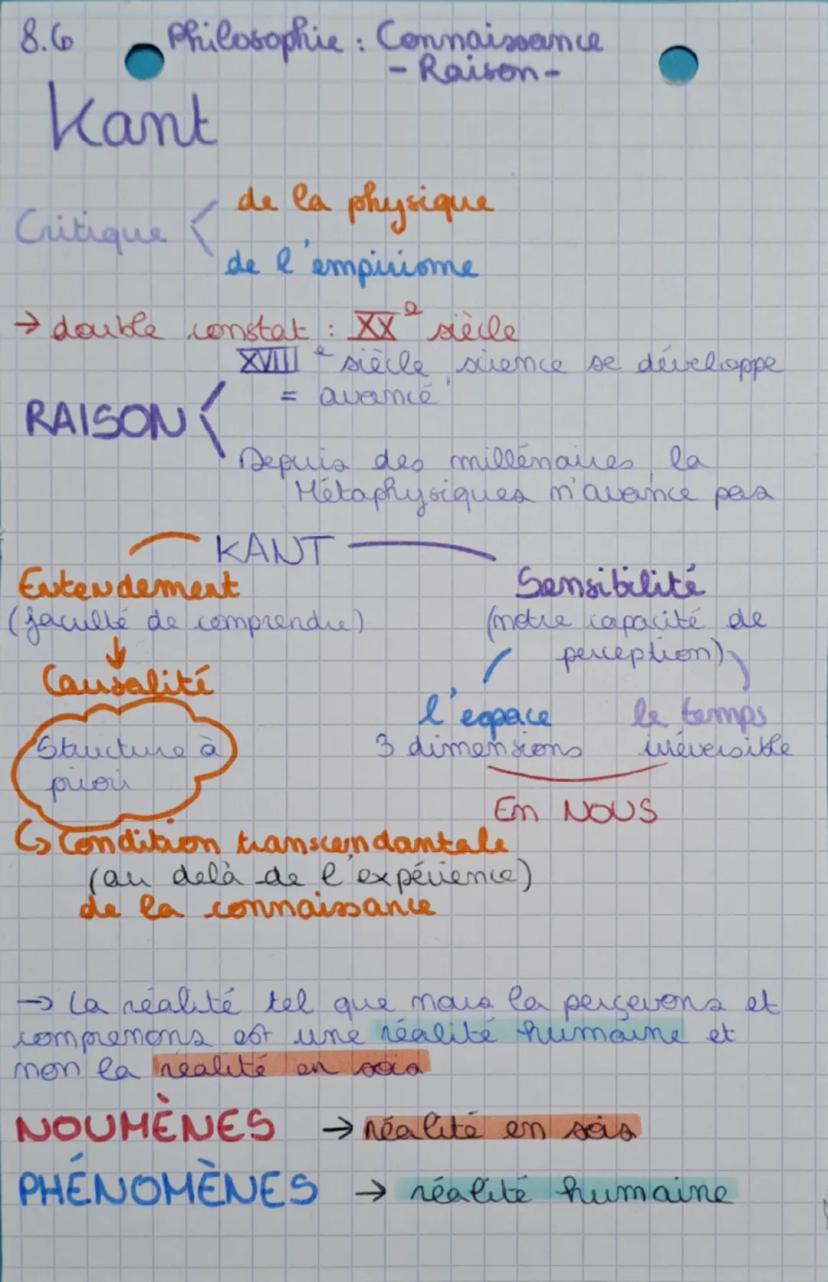 8.6 Philosophie : Connaissance
- Raison -
Kant
Critique
de la physique
de l'empirisme
→ double constat : XXe siècle
XVIIIe siècle, science se développe
= avancé
RAISON
Depuis des millénaires, la
Métaphysiques n'avance pas
KANT
Entendement
(faculté de comprendre)
Causalité
Structure à
priori
Sensibilité
(notre capacité de
perception)
l'espace
3 dimensions
le temps
irréversible
En NOUS
↳ Condition transcendantale
(au delà de l'expérience)
de la connaissance
→ La réalité tel que nous la perçevons et
comprenons est une réalité humaine et
non la réalité en sois
NOUMÈNES → réalité en sois
PHÉNOMÈNES → réalité humaine